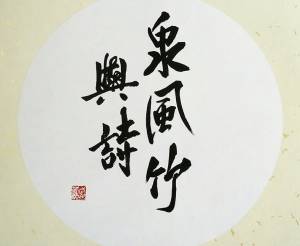 泉風竹
與詩